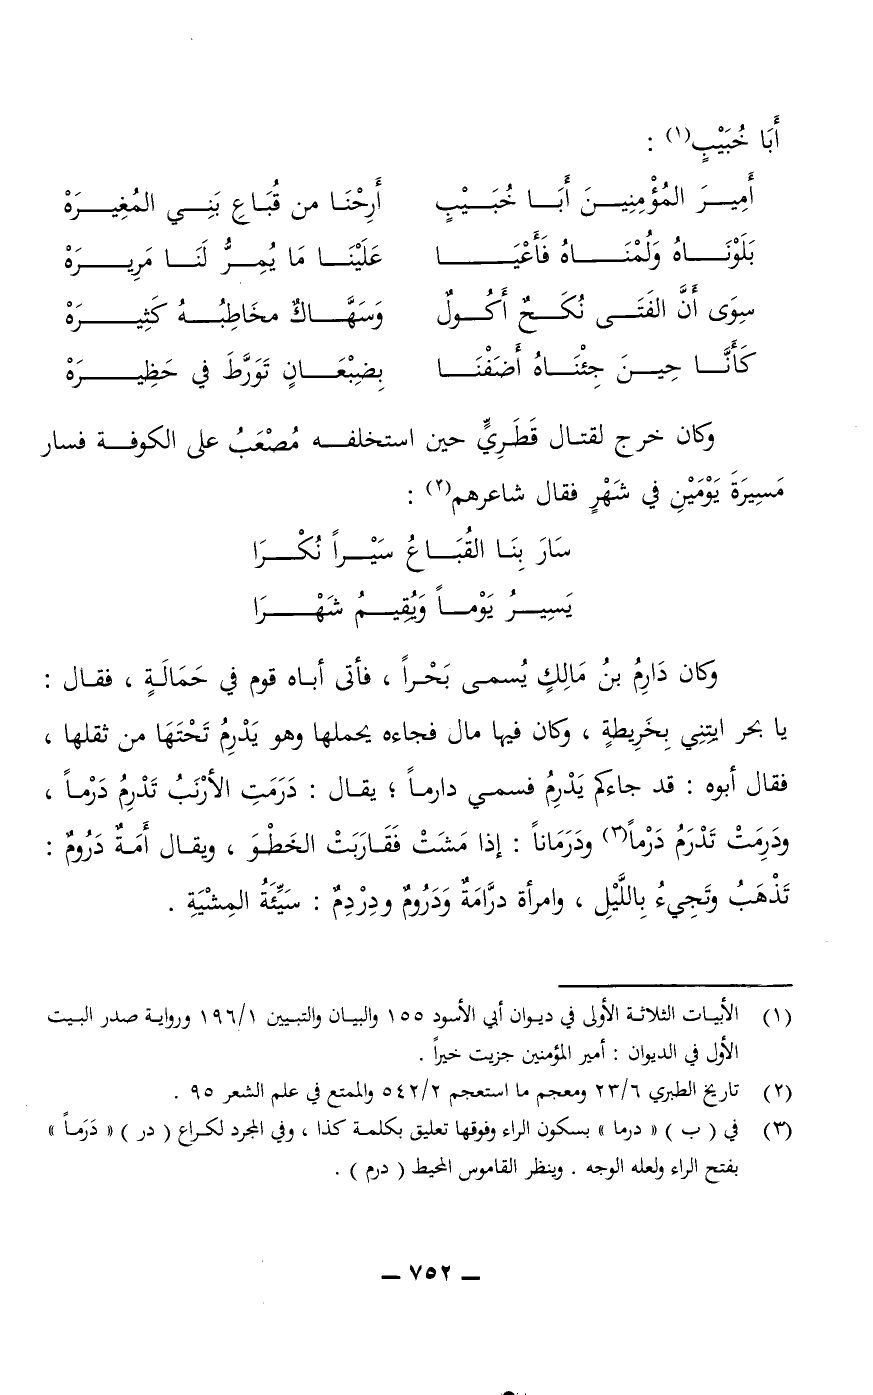 أَبَا خُبَيْبٍ(١) :
أَمِيرَ المُؤْمِنِينَ أَبَا خُبَيْبٍ أَرِحْنَا من قُبَاعِ بَنِي المُغِيرَهْ
بَلَوْنَاهُ وَلُمْنَاهُ فَأَعْيَا عَلَيْنَا مَا يُمِرُّ لَنَا مَرِيرَهْ
سِوَى أَنَّ الفَتَى نُكَحٌ أَكُولٌ وَسَهَّاكٌ مخَاطِبُهُ كَثِيرَهْ
كَأَنَّا حِينَ جِئْنَاهُ أَضَفْنَا بِضِبْعَانٍ تَوَرَّطَ في حَظِيرَهْ
وكان خرج لقتال قَطَرِيٍّ حين استخلفه مُصْعَبُ على الكوفة فسار
مَسِيرَةَ يَوْمَيْنِ في شَهْرٍ فقال شاعرهم(٢) :
سَارَ بِنَا القُبَاعُ سَيْراً نُكْرَا
يَسِيرُ يَوْماً وَيُقِيمُ شَهْرَا
وكان دَارِمُ بنُ مَالِكٍ يُسمى بَحْراً ، فأتى أباه قوم في حَمَالَةٍ ، فقال :
يا بحر ايتِنِي بِخَرِيطةٍ ، وكان فيها مال فجاءه يحملها وهو يَدْرِمُ تَحْتَهَا من ثقلها ،
فقال أبوه : قد جاءكم يَدْرِمُ فسمي دارماً ؛ يقال : دَرَمَتِ الأرْنَبُ تَدْرِمُ دَرْماً ،
ودَرِمَتْ تَدْرَمُ دَرْماً(٣) ودَرَمَاناً : إذا مَشَتْ فَقَارَبَتْ الخَطْوَ ، ويقال أَمَةٌ دَرُومٌ :
تَذْهَبُ وتَجِيءُ بِاللَّيْلِ ، وامرأة درَّامَةٌ وَدَرُومٌ ودِرْدِمٌ : سَيِّئَةُ المِشْيَةِ .
(١) الأبيات الثلاثة الأولى في ديوان أبي الأسود ١٥٥ والبيان والتبيين ١٩٦/١ ورواية صدر البيت
الأول في الديوان : أمير المؤمنين جزيت خيراً .
(٢) تاريخ الطبري ٢٣/٦ ومعجم ما استعجم ٥٤٢/٢ والممتع في علم الشعر ٩٥ .
(٣) في ( ب ) « درما » بسكون الراء وفوقها تعليق بكلمة كذا ، وفي المجرد لكراع ( در ) « دَرَماً »
بفتح الراء ولعله الوجه . وينظر القاموس المحيط ( درم ) .
ـ ٧٥٢ ـ